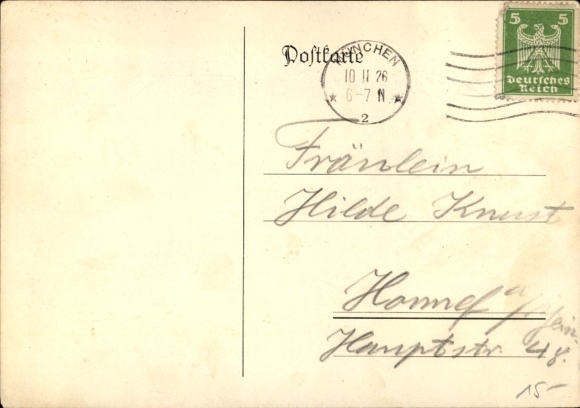 Postkarte
MÜNCHEN
10 II 26
6-7 N
2
5 5
Deutsches
Reich
Fräulein
Hilde Knust
Honnef a/Rhein.
Hauptstr. 48.
15-